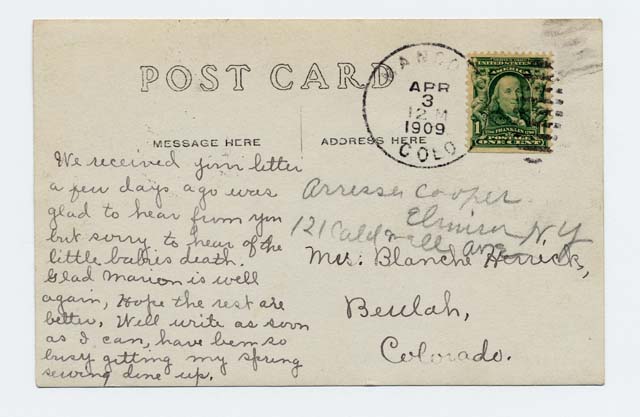 POST CARD
MANCOS
APR
3
12 M
1909
COLO
UNITED STATES OF AMERICA
FRANKLIN
1 1
POSTAGE
ONE CENT
MESSAGE HERE
ADDRESS HERE
We received your letter
a few days ago was
glad to hear from you
but sorry to hear of the
little babies death.
Glad Marion is well
again, Hope the rest are
better. Will write as soon
as I can, have been so
busy getting my spring
sewing done up.
Cooper
Elmira N.Y
121 Caldwell Ave
Mrs. Blanche Herrick,
Beulah,
Colorado.